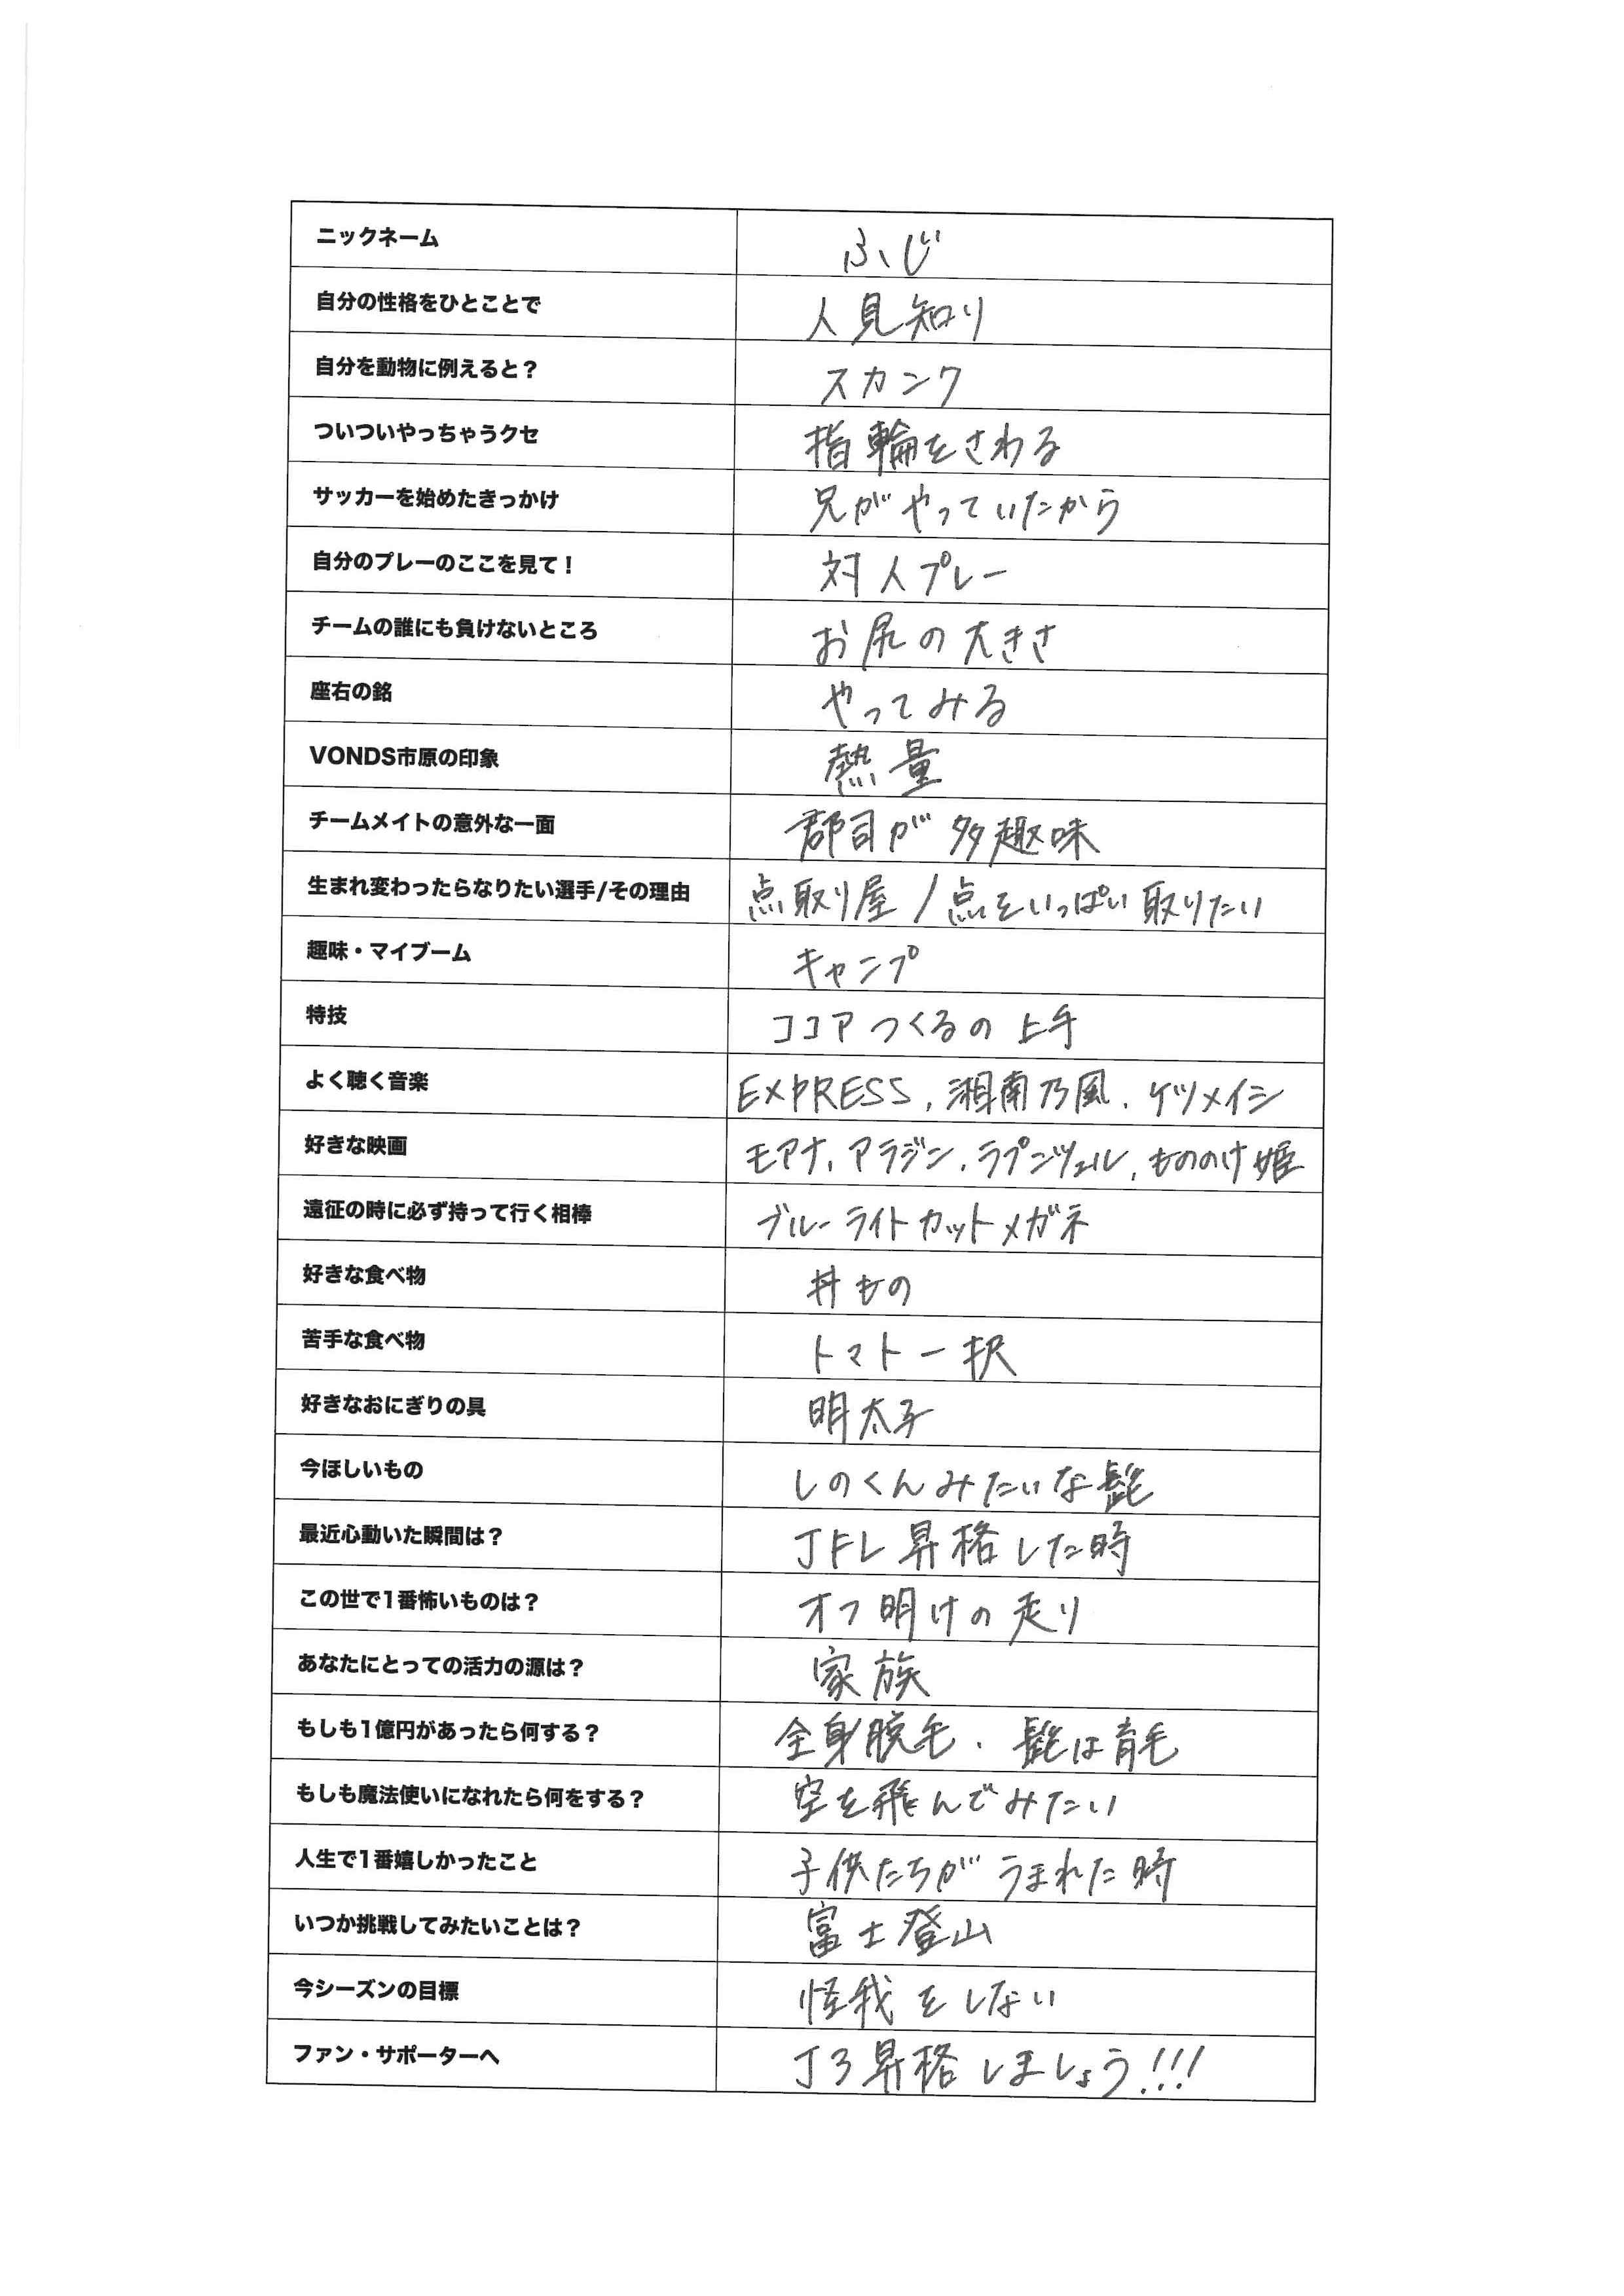 ニックネーム ふじ
自分の性格をひとことで 人見知り
自分を動物に例えると？ スカンク
ついついやっちゃうクセ 指輪をさわる
サッカーを始めたきっかけ 兄がやっていたから
自分のプレーのここを見て！ 対人プレー
チームの誰にも負けないところ お尻の大きさ
座右の銘 やってみる
VONDS市原の印象 熱量
チームメイトの意外な一面 郡司が多趣味
生まれ変わったらなりたい選手/その理由 点取り屋/点をいっぱい取りたい
趣味・マイブーム キャンプ
特技 ココアつくるの上手
よく聴く音楽 EXPRESS、湘南乃風、ケツメイシ
好きな映画 モアナ、アラジン、ラプンツェル、もののけ姫
遠征の時に必ず持って行く相棒 ブルーライトカットメガネ
好きな食べ物 丼もの
苦手な食べ物 トマト一択
好きなおにぎりの具 明太子
今ほしいもの しのくんみたいな髭
最近心動いた瞬間は？ JFL昇格した時
この世で1番怖いものは？ オフ明けの走り
あなたにとっての活力の源は？ 家族
もしも1億円があったら何する？ 全身脱毛、髭は育毛
もしも魔法使いになれたら何をする？ 空を飛んでみたい
人生で1番嬉しかったこと 子供たちがうまれた時
いつか挑戦してみたいことは？ 富士登山
今シーズンの目標 怪我をしない
ファン・サポーターへ J3昇格しましょう!!!